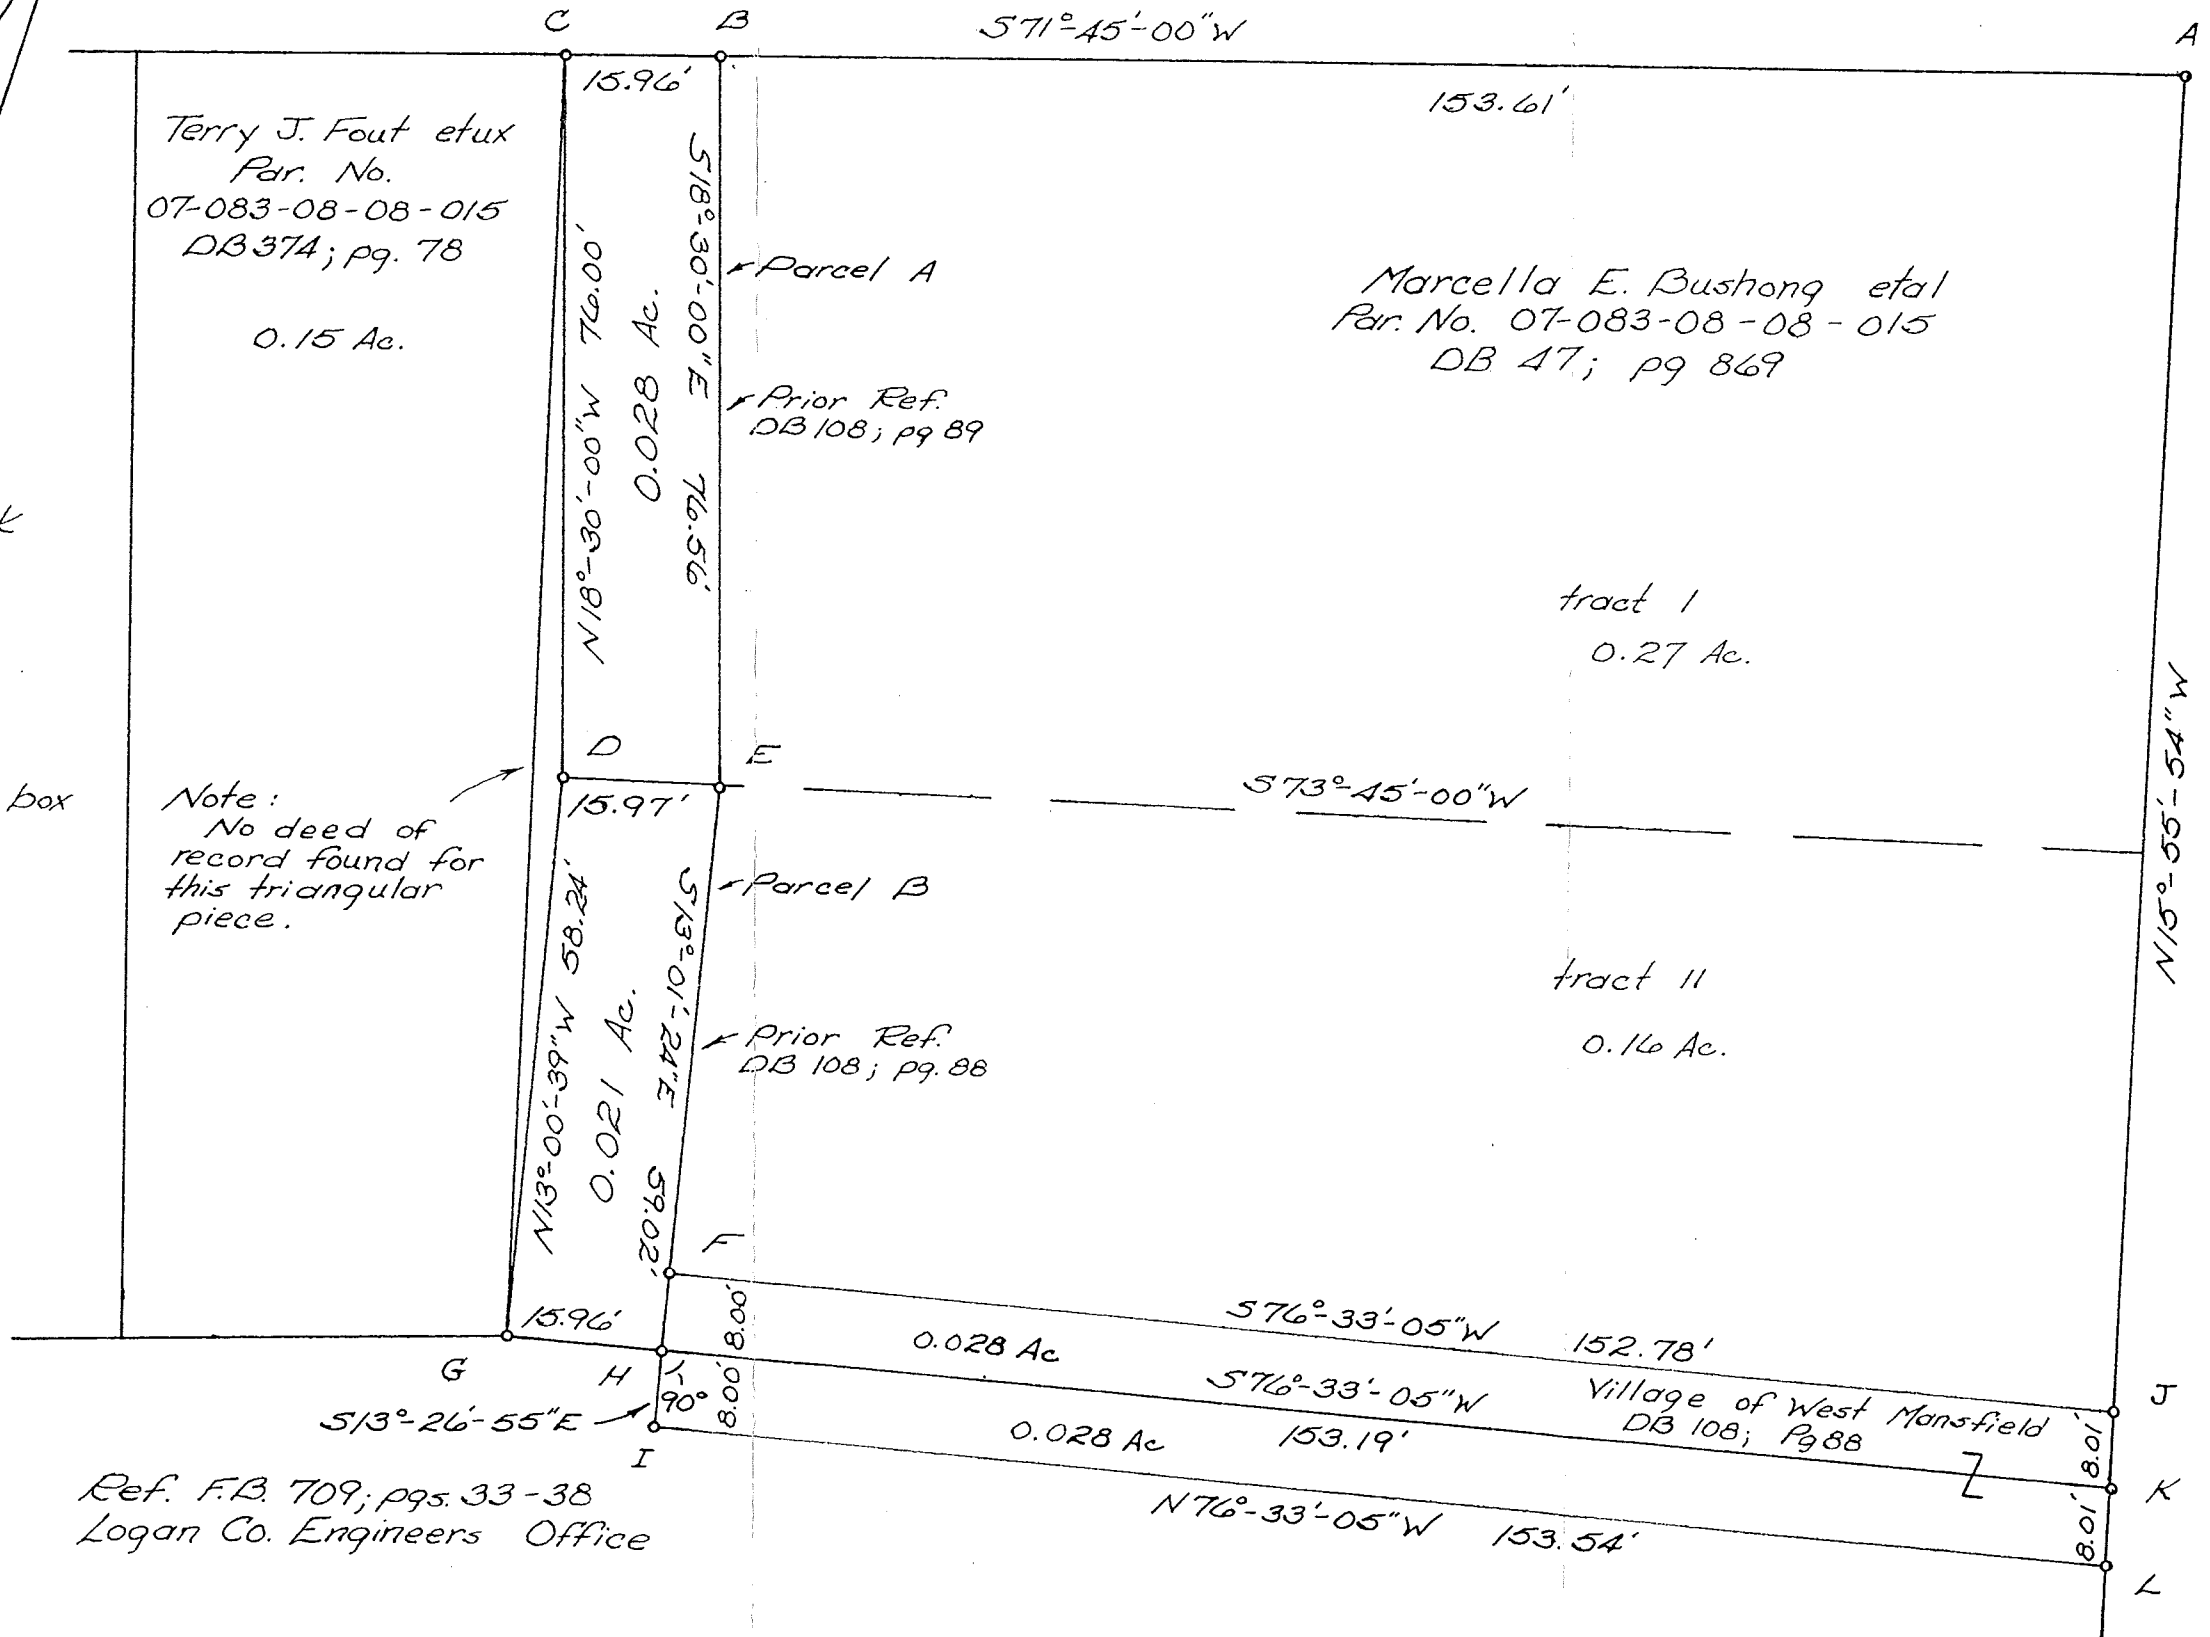 C
B
S71°-45'-00"W
A
15.96'
153.61'
Terry J. Fout etux
Par. No.
07-083-08-08-015
DB374; pg. 78
0.15 Ac.
N18°-30'-00"W 76.00'
0.028 Ac.
S18°-30'-00"E 76.56'
Parcel A
Prior Ref.
DB 108; pg 89
Marcella E. Bushong etal
Par. No. 07-083-08-08-015
DB 47; pg 869
tract I
0.27 Ac.
N15°-55'-54"W
D
E
15.97'
S73°-45'-00"W
box
Note:
No deed of
record found for
this triangular
piece.
N13°-00'-39"W 58.24'
0.021 Ac.
S13°-01'-24"E 59.02'
Parcel B
Prior Ref.
DB 108; pg. 88
tract II
0.16 Ac.
F
15.96'
8.00'
0.028 Ac
S76°-33'-05"W 152.78'
J
G
H
90°
8.00'
S76°-33'-05"W
Village of West Mansfield
DB 108; Pg 88
8.01'
S13°-26'-55"E
I
0.028 Ac
153.19'
K
N76°-33'-05"W 153.54'
8.01'
L
Ref. F.B. 709; pgs. 33-38
Logan Co. Engineers Office